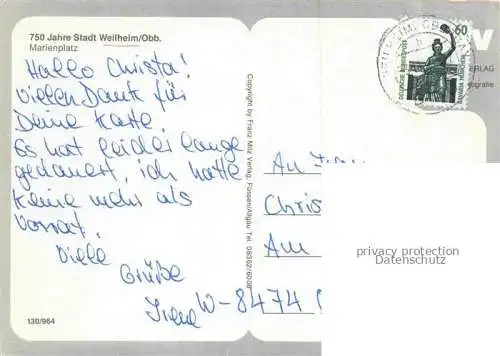 750 Jahre Stadt Weilheim/Obb.
Marienplatz
Hallo Christa!
Vielen Dank für
Deine Karte.
Es hat leider lange
gedauert, ich hatte
keine mehr als
Vorrat.
Viele
Grüße
Irene
130/964
Copyright by Franz Milz Verlag, Füssen/Allgäu
V
VERLAG
60
DEUTSCHE BUNDESPOST
BAVARIA MÜNCHEN
An
Chris
Am
W-8474
privacy protection
Datenschutz